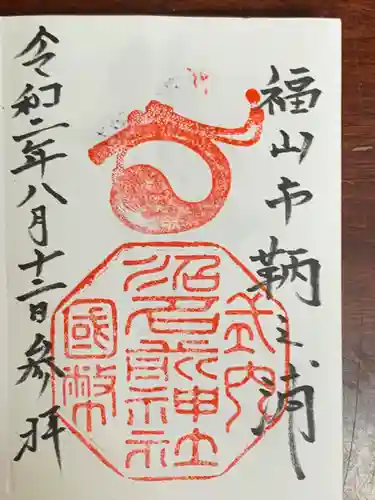 福山市鞆之浦
式内
沼名前神社
國幣
令和二年八月十二日参拝